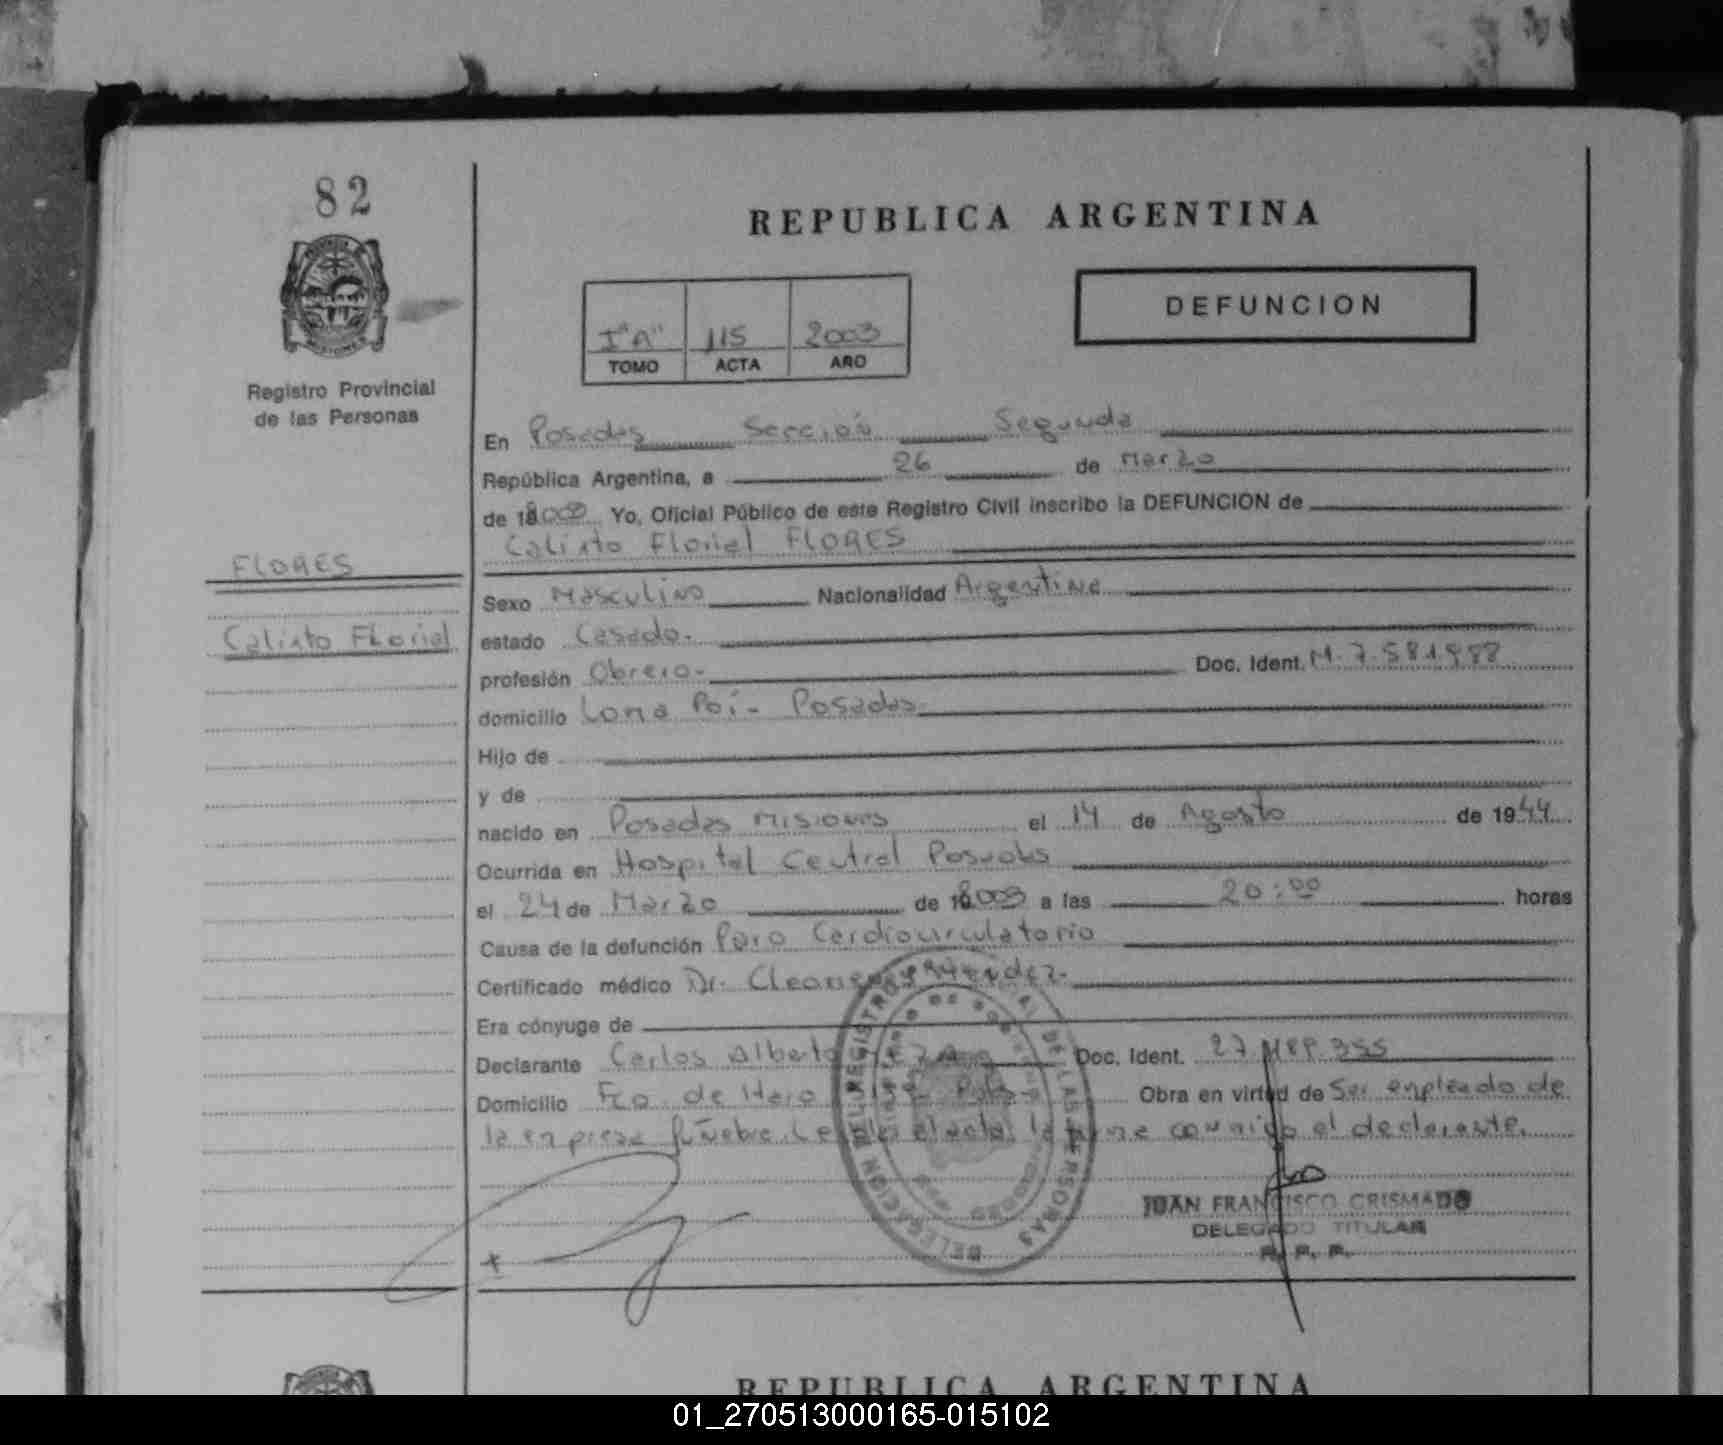 82
REPUBLICA ARGENTINA
DEFUNCION
I "A" 115 2003
TOMO ACTA AÑO
Registro Provincial
de las Personas
En Posadas Sección Segunda
República Argentina, a 26 de Marzo
de 2003 Yo, Oficial Público de este Registro Civil inscribo la DEFUNCION de
Calixto Florial FLORES
FLORES
Sexo Masculino Nacionalidad Argentina
Calixto Florial
estado Casado.
profesión Obrero- Doc. Ident. M. 7.581.988
domicilio Loma Poí- Posadas
Hijo de
y de
nacido en Posadas Misiones el 14 de Agosto de 1944
Ocurrida en Hospital Central Posadas
el 24 de Marzo de 2003 a las 20:00 horas
Causa de la defunción Paro Cardiocirculatorio
Certificado médico Dr.
Era cónyuge de
Declarante Carlos Alberto Doc. Ident. 27.355
Domicilio Fco. de Haro Obra en virtud de Ser empleado de
la empresa fúnebre. Leída el acta, la firma conmigo el declarante.
JUAN FRANCISCO CRISMADO
DELEGADO TITULAR
R. P. P.
REPUBLICA ARGENTINA
01_270513000165-015102